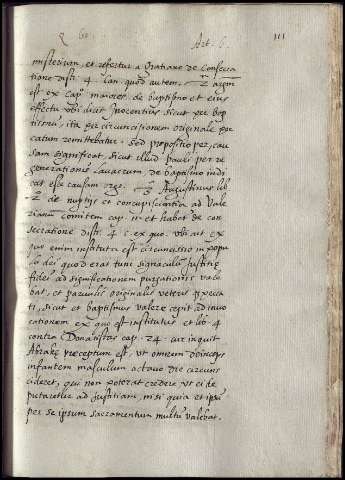 Q. 60. Art. 6. 111
misterium, et refertur a Gratiano de Consecra
tione disti. 4. can. quod autem. 2. argm
est ex cap. maiores de baptismo et eius
effectu ubi dicit Inocentius sicut per bap
tismũ, ita per circuncisionem originale pec
catum remittebatur. Sed propositio per, cau
sam significat, sicut illud Pauli per re
generationis lavacrum de baptismo indi
cat esse causam rege. Augustinus lib
2. de nuptijs et concupiscientia ad Vale
rianũ comitem cap. 11. et habet de con
secratione disti. 4. c. ex quo. ubi ait ex
quo enim instituta est circuncisio in popu
lo dei quod erat tunc signaculũ Justitiae
fidei ad significationem purgationis vale
bat, et parvulis originalis veteris peccati
sicut et baptismus valere cepit ad inno
vationem ex quo est institutus et lib. 4
contra Donatistas cap. 24. cur inquit
Abrahe preceptum est, ut omnem deinceps
infantem masculum octavo die circunci
deret, qui non poterat credere ut ei de
putaretur ad Justitiam, nisi quia et ipsũ
per se ipsum sacramentum multũ valebat.